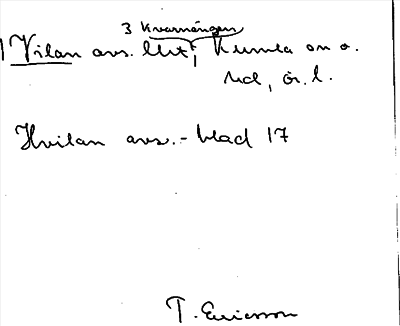 3 Kvarnängen
1 Vilan avs. lht; Kumla sn o.
hd, ör. l.
Hvilan avs. - blad 17
T. Ericsson